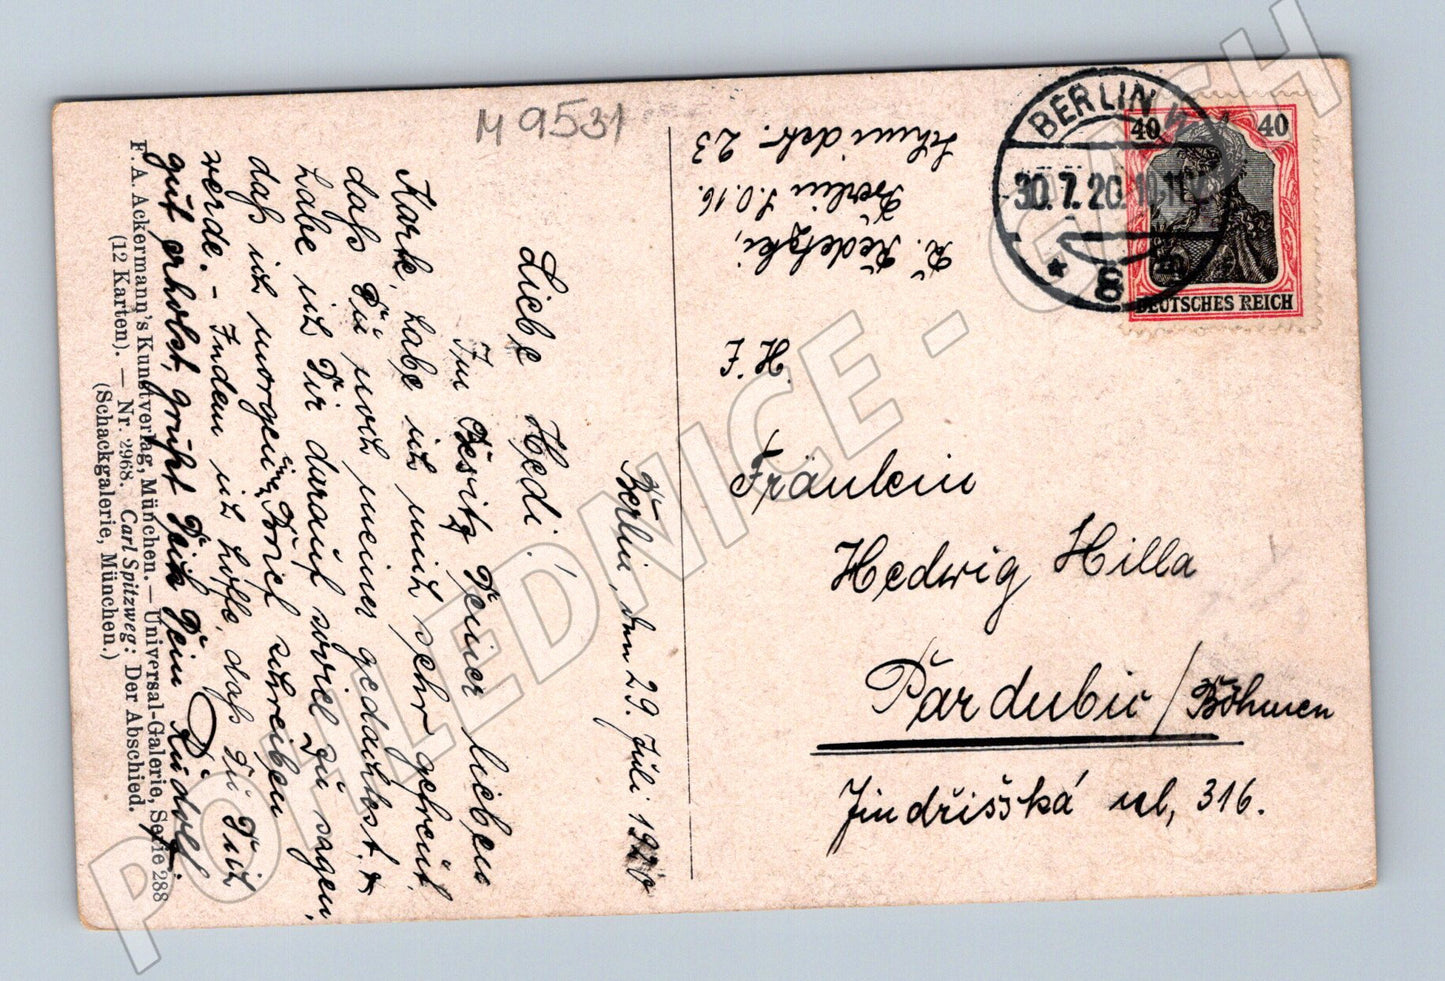 M 9531
Berlin, den 29. Juli 1920
Liebe Hedi!
Im Besitz Deiner lieben
Karte, habe ich mich sehr gefreut,
daß Du noch meiner gedachtest. +
habe ich Dir darauf soviel zu sagen,
daß ich morgen einen Brief schreiben
werde. - Indem ich hoffe, daß Du Dich
gut erholst, grüßt Dich Dein Rudolf
F. A. Ackermann's Kunstverlag, München. — Universal-Galerie, Serie 288
(12 Karten). — Nr. 2968. Carl Spitzweg: Der Abschied.
(Schackgalerie, München.)
R. Redetzki,
Berlin S.O.16.
23
H. F.
BERLIN W
30.7.20.10-11V.
* 8
40 40
DEUTSCHES REICH
Fräulein
Hedwig Hilla
Pardubic / Böhmen
Jindřišská ul, 316.
POHLEDNICE - GMCH